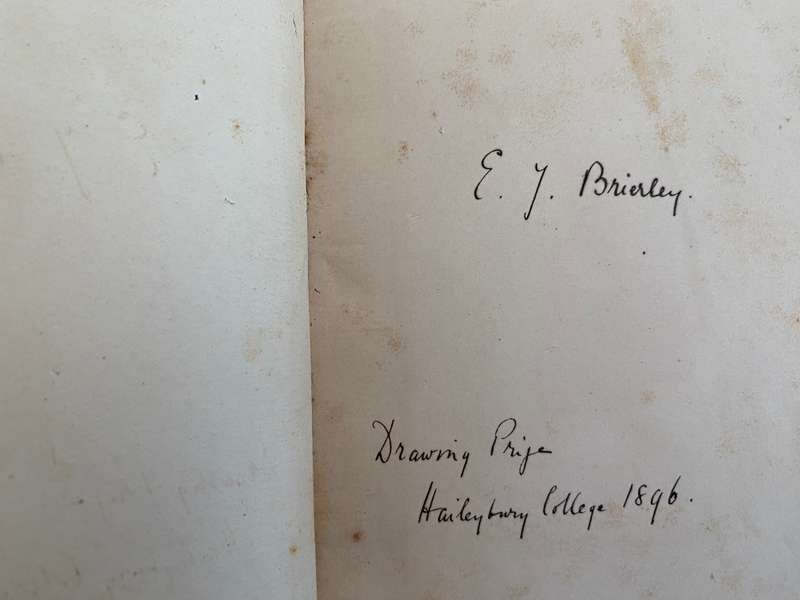 E. J. Brierley.
Drawing Prize
Haileybury College 1896.